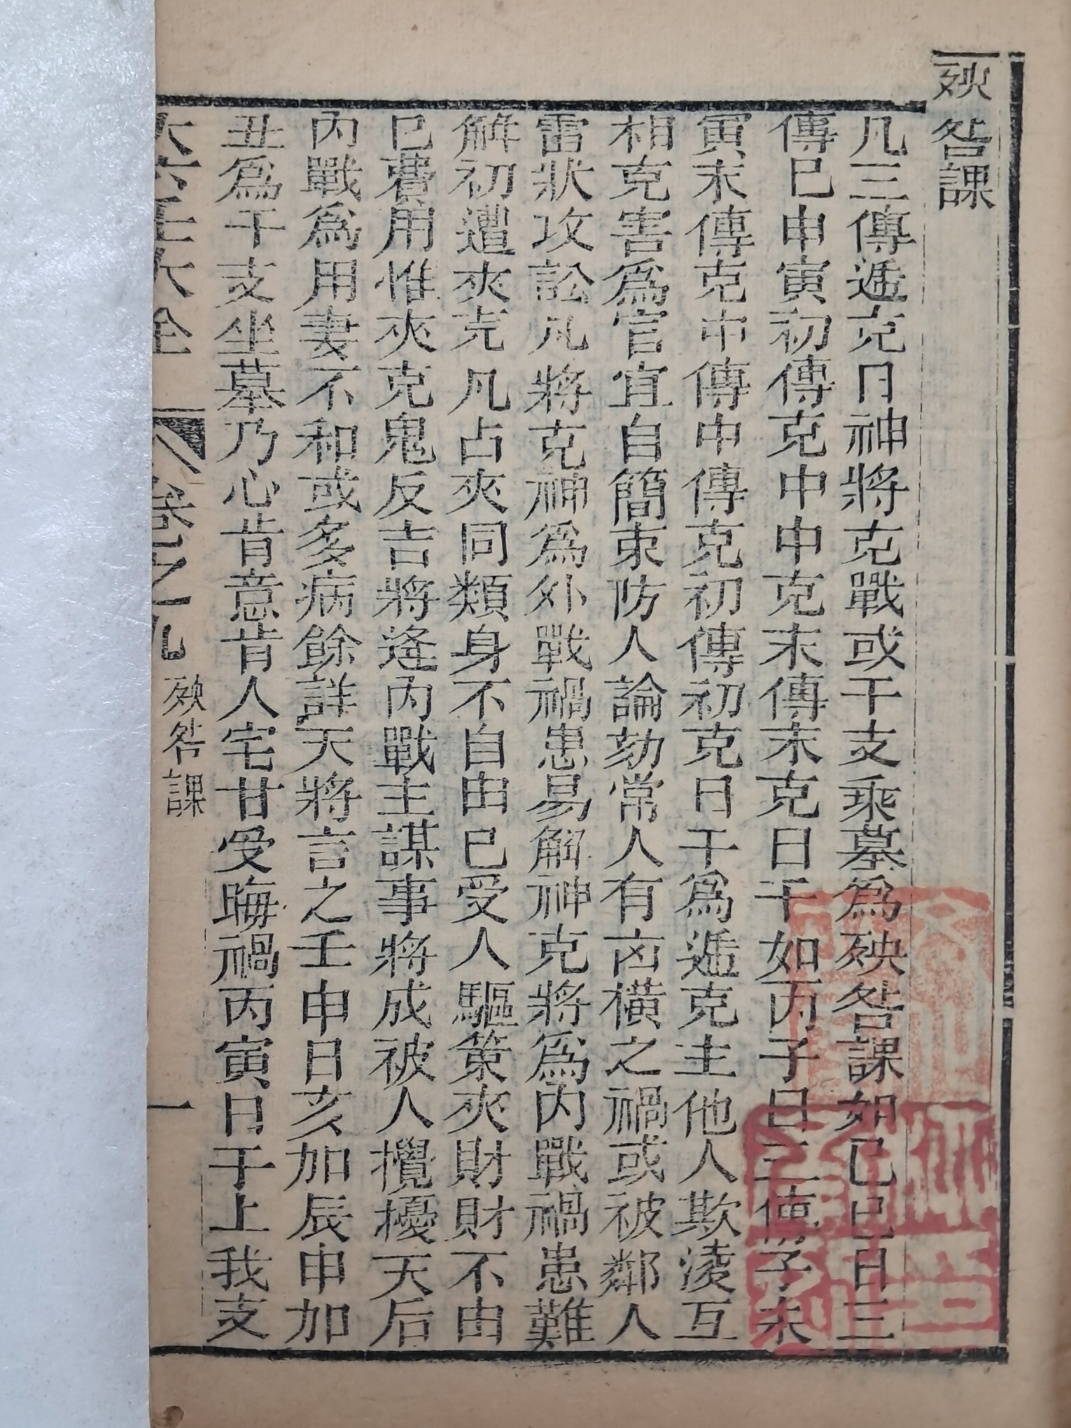 殃咎課
凡三傳遞克日神將克戰或干支乘墓為殃咎課如己巳日三
傳巳申寅初傳克中中克末傳末克日干如丙子日三傳子未
寅末傳克中傳中傳克初傳初克日干為遞克主他人欺淩互
相克害為官宜自簡束防人論劾常人有凶橫之禍或被鄰人
雷狀攻訟凡將克神為外戰禍患易解神克將為內戰禍患難
解初遭夾克凡占夾同類身不自由已受人驅策夾財財不由
已費用惟夾克鬼反吉將逢內戰主謀事將成被人攪擾天后
內戰為用妻不和或多病餘詳天將言之壬申日亥加辰申加
丑為干支坐墓乃心肯意肯人宅甘受晦禍丙寅日干上我支
大六壬大全 卷之九 殃咎課 一